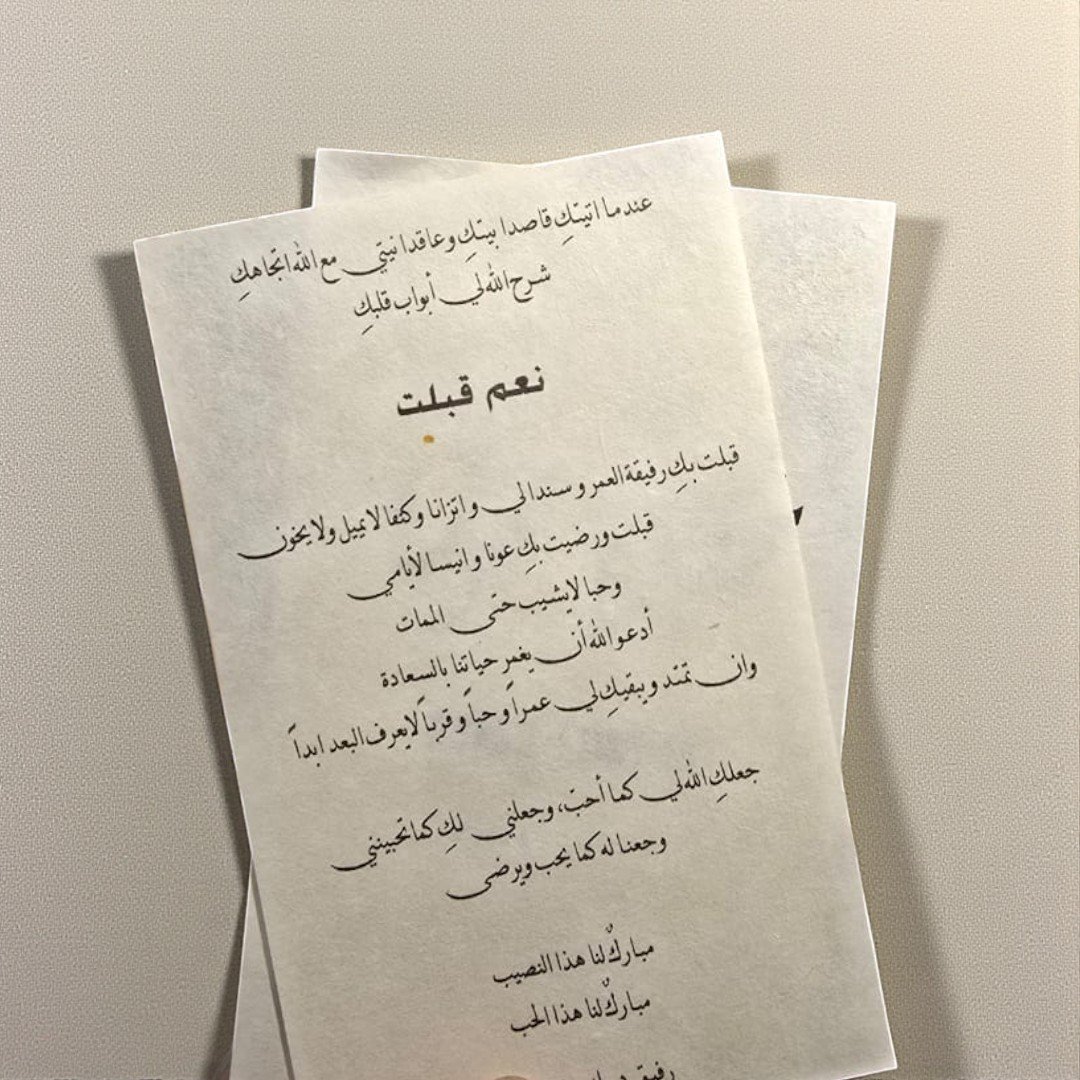 عندما اتيتكِ قاصدا بيتكِ وعاقدا نيتي مع الله اتجاهكِ
شرح الله لي أبواب قلبكِ
نعم قبلت
قبلت بكِ رفيقة العمر وسندا لي واتزانا وكتفا لا يميل ولا يخون
قبلت ورضيت بكِ عونا وانيسا لأيامي
وحبا لا يشيب حتى الممات
أدعو الله أن يغمر حياتنا بالسعادة
وان تمتد ويبقيكِ لي عمراً وحباً وقرباً لا يعرف البعد ابداً
جعلكِ الله لي كما أحبّ، وجعلني لكِ كما تحبينني
وجعنا له كما يحب ويرضى
مباركٌ لنا هذا النصيب
مباركٌ لنا هذا الحب